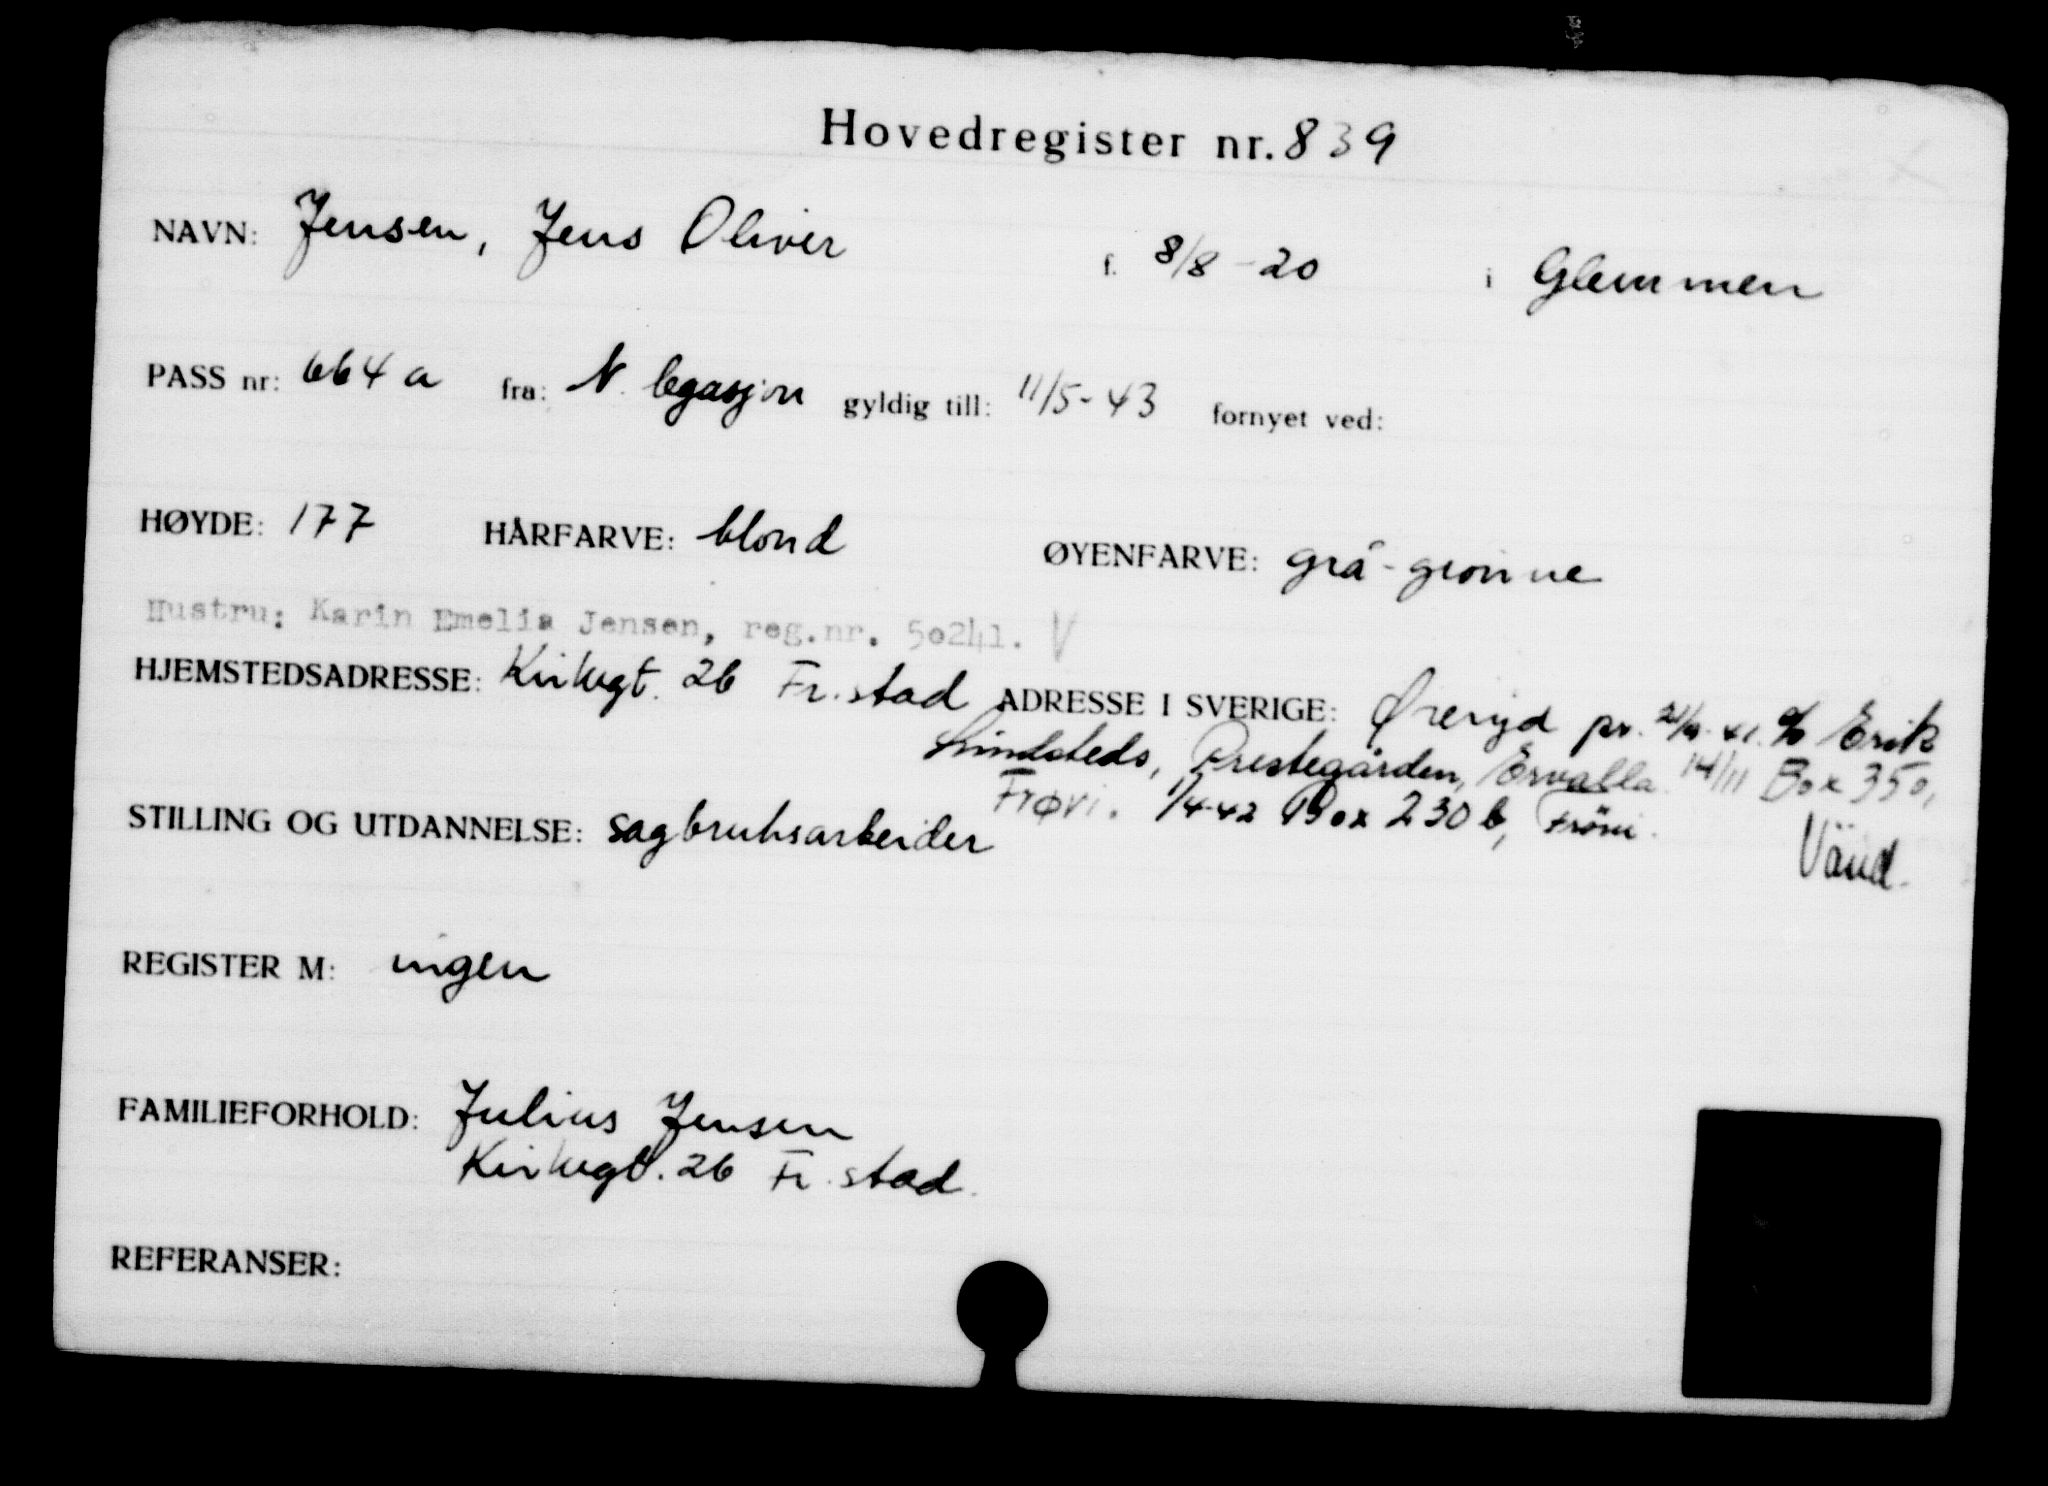 Hovedregister nr. 839
NAVN: Jensen, Jens Oliver f. 8/8-20 i Glemmen
PASS nr: 664 a fra: N. legasjon gyldig till: 11/5-43 fornyet ved:
HØYDE: 177 HÅRFARVE: blond ØYENFARVE: grå-grønne
Hustru: Karin Emelia Jensen, reg.nr. 50241. V
HJEMSTEDSADRESSE: Kirkegt. 26 Fr.stad ADRESSE I SVERIGE: Øreryd pr. 21/9-41. c/o Erik
Lindsteds, Prestegården, Ervalla. 14/11 Box 350,
Frøvi. 1/4-42 Box 230 b, Frövi.
STILLING OG UTDANNELSE: sagbruksarbeider Vänd.
REGISTER M: ingen
FAMILIEFORHOLD: Julius Jensen
Kirkegt. 26 Fr.stad.
REFERANSER: